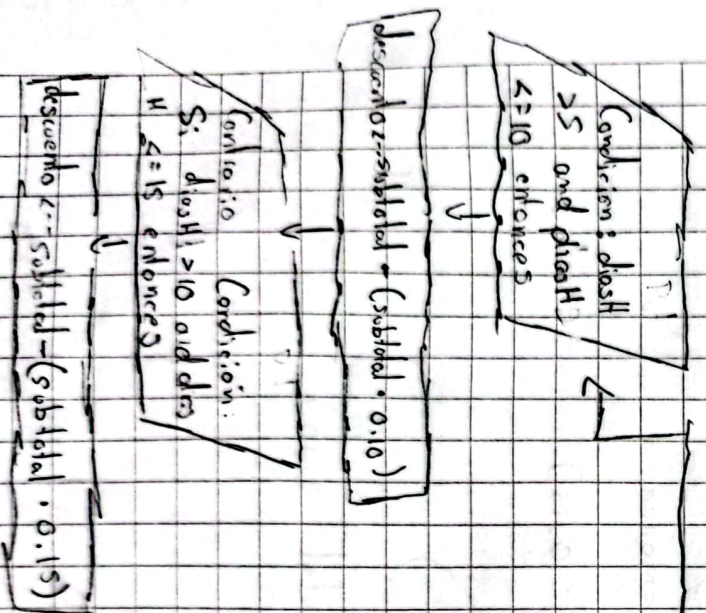 Condicion: diasH
>5 and diasH
<=10 entonces
descuento <- subtotal - (subtotal * 0.10)
Contrario Condicion:
Si diasH >10 and dias
H <=15 entonces
descuento <- subtotal - (subtotal * 0.15)